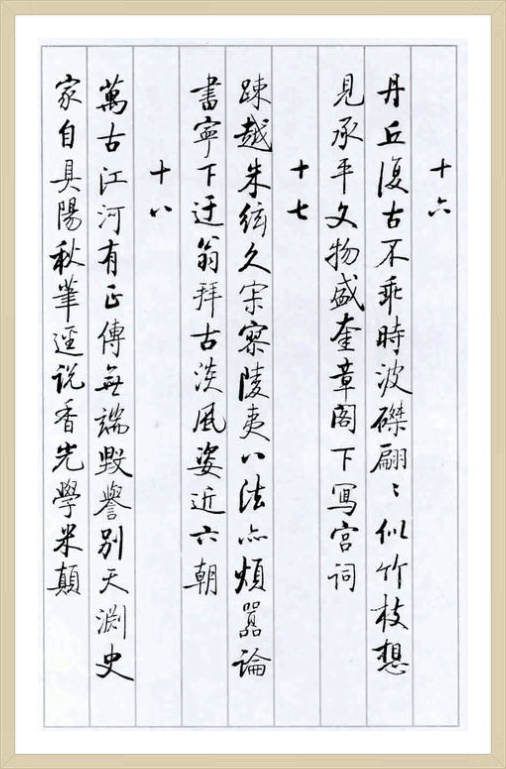 十六
丹丘復古不乖時波磔翩〻似竹枝想
見承平文物盛奎章閣下寫宮詞
十七
踈越朱絃久寂寥陵夷八法亦煩囂論
書寧下迂翁拜古淡風姿近六朝
十八
萬古江河有正傳無端毀譽別天淵史
家自具陽秋筆逕說香光學米顛